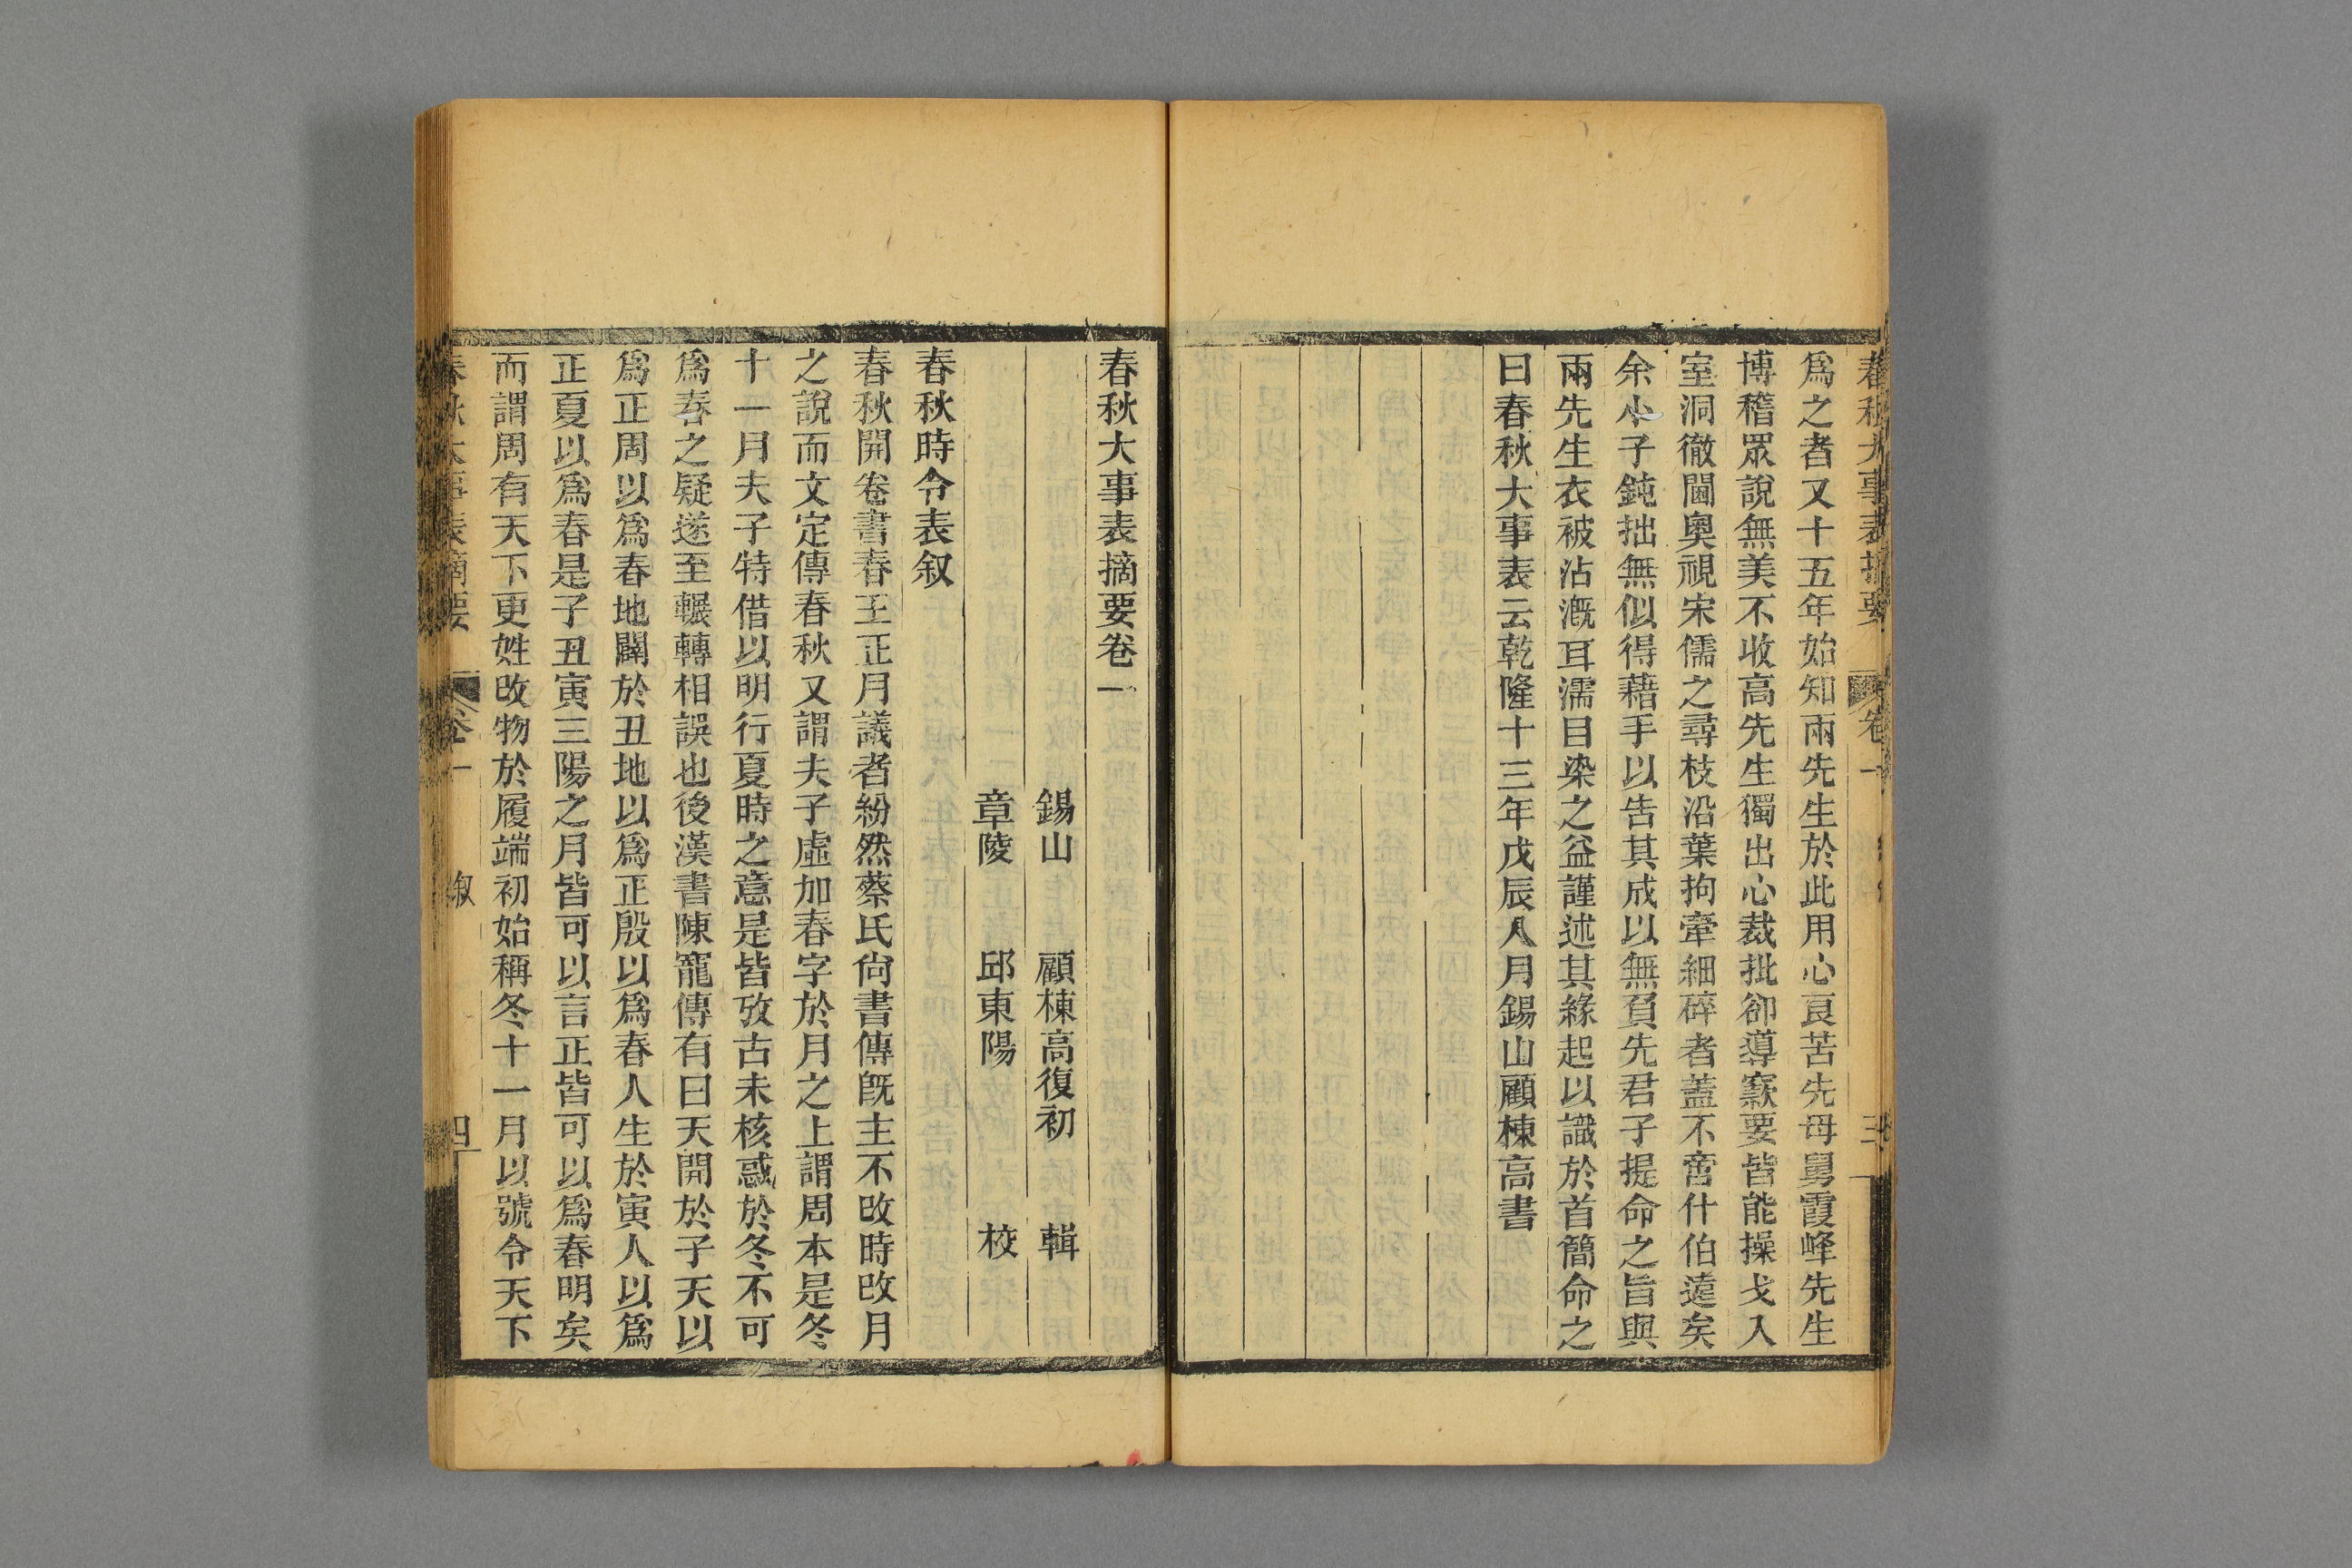 春秋大事表摘要 卷一 三
爲之者又十五年始知兩先生於此用心良苦先母舅霞峰先生
博稽眾說無美不收高先生獨出心裁批卻導窾要皆能操戈入
室洞徹閫奧視宋儒之尋枝沿葉拘牽細碎者蓋不啻什伯遠矣
余小子鈍拙無似得藉手以告其成以無負先君子提命之旨與
兩先生衣被沾漑耳濡目染之益謹述其緣起以識於首簡命之
曰春秋大事表云乾隆十三年戊辰八月錫山顧棟高書
春秋大事表摘要卷一
錫山 顧棟高復初 輯
章陵 邱東陽 校
春秋時令表叙
春秋開卷書春王正月議者紛然蔡氏尙書傳旣主不改時改月
之說而文定傳春秋又謂夫子虛加春字於月之上謂周本是冬
十一月夫子特借以明行夏時之意是皆攷古未核惑於冬不可
爲春之疑遂至輾轉相誤也後漢書陳寵傳有曰天開於子天以
爲正周以爲春地闢於丑地以爲正殷以爲春人生於寅人以爲
正夏以爲春是子丑寅三陽之月皆可以言正皆可以爲春明矣
而謂周有天下更姓改物於履端初始稱冬十一月以號令天下
春秋大事表摘要 卷一 叙 四